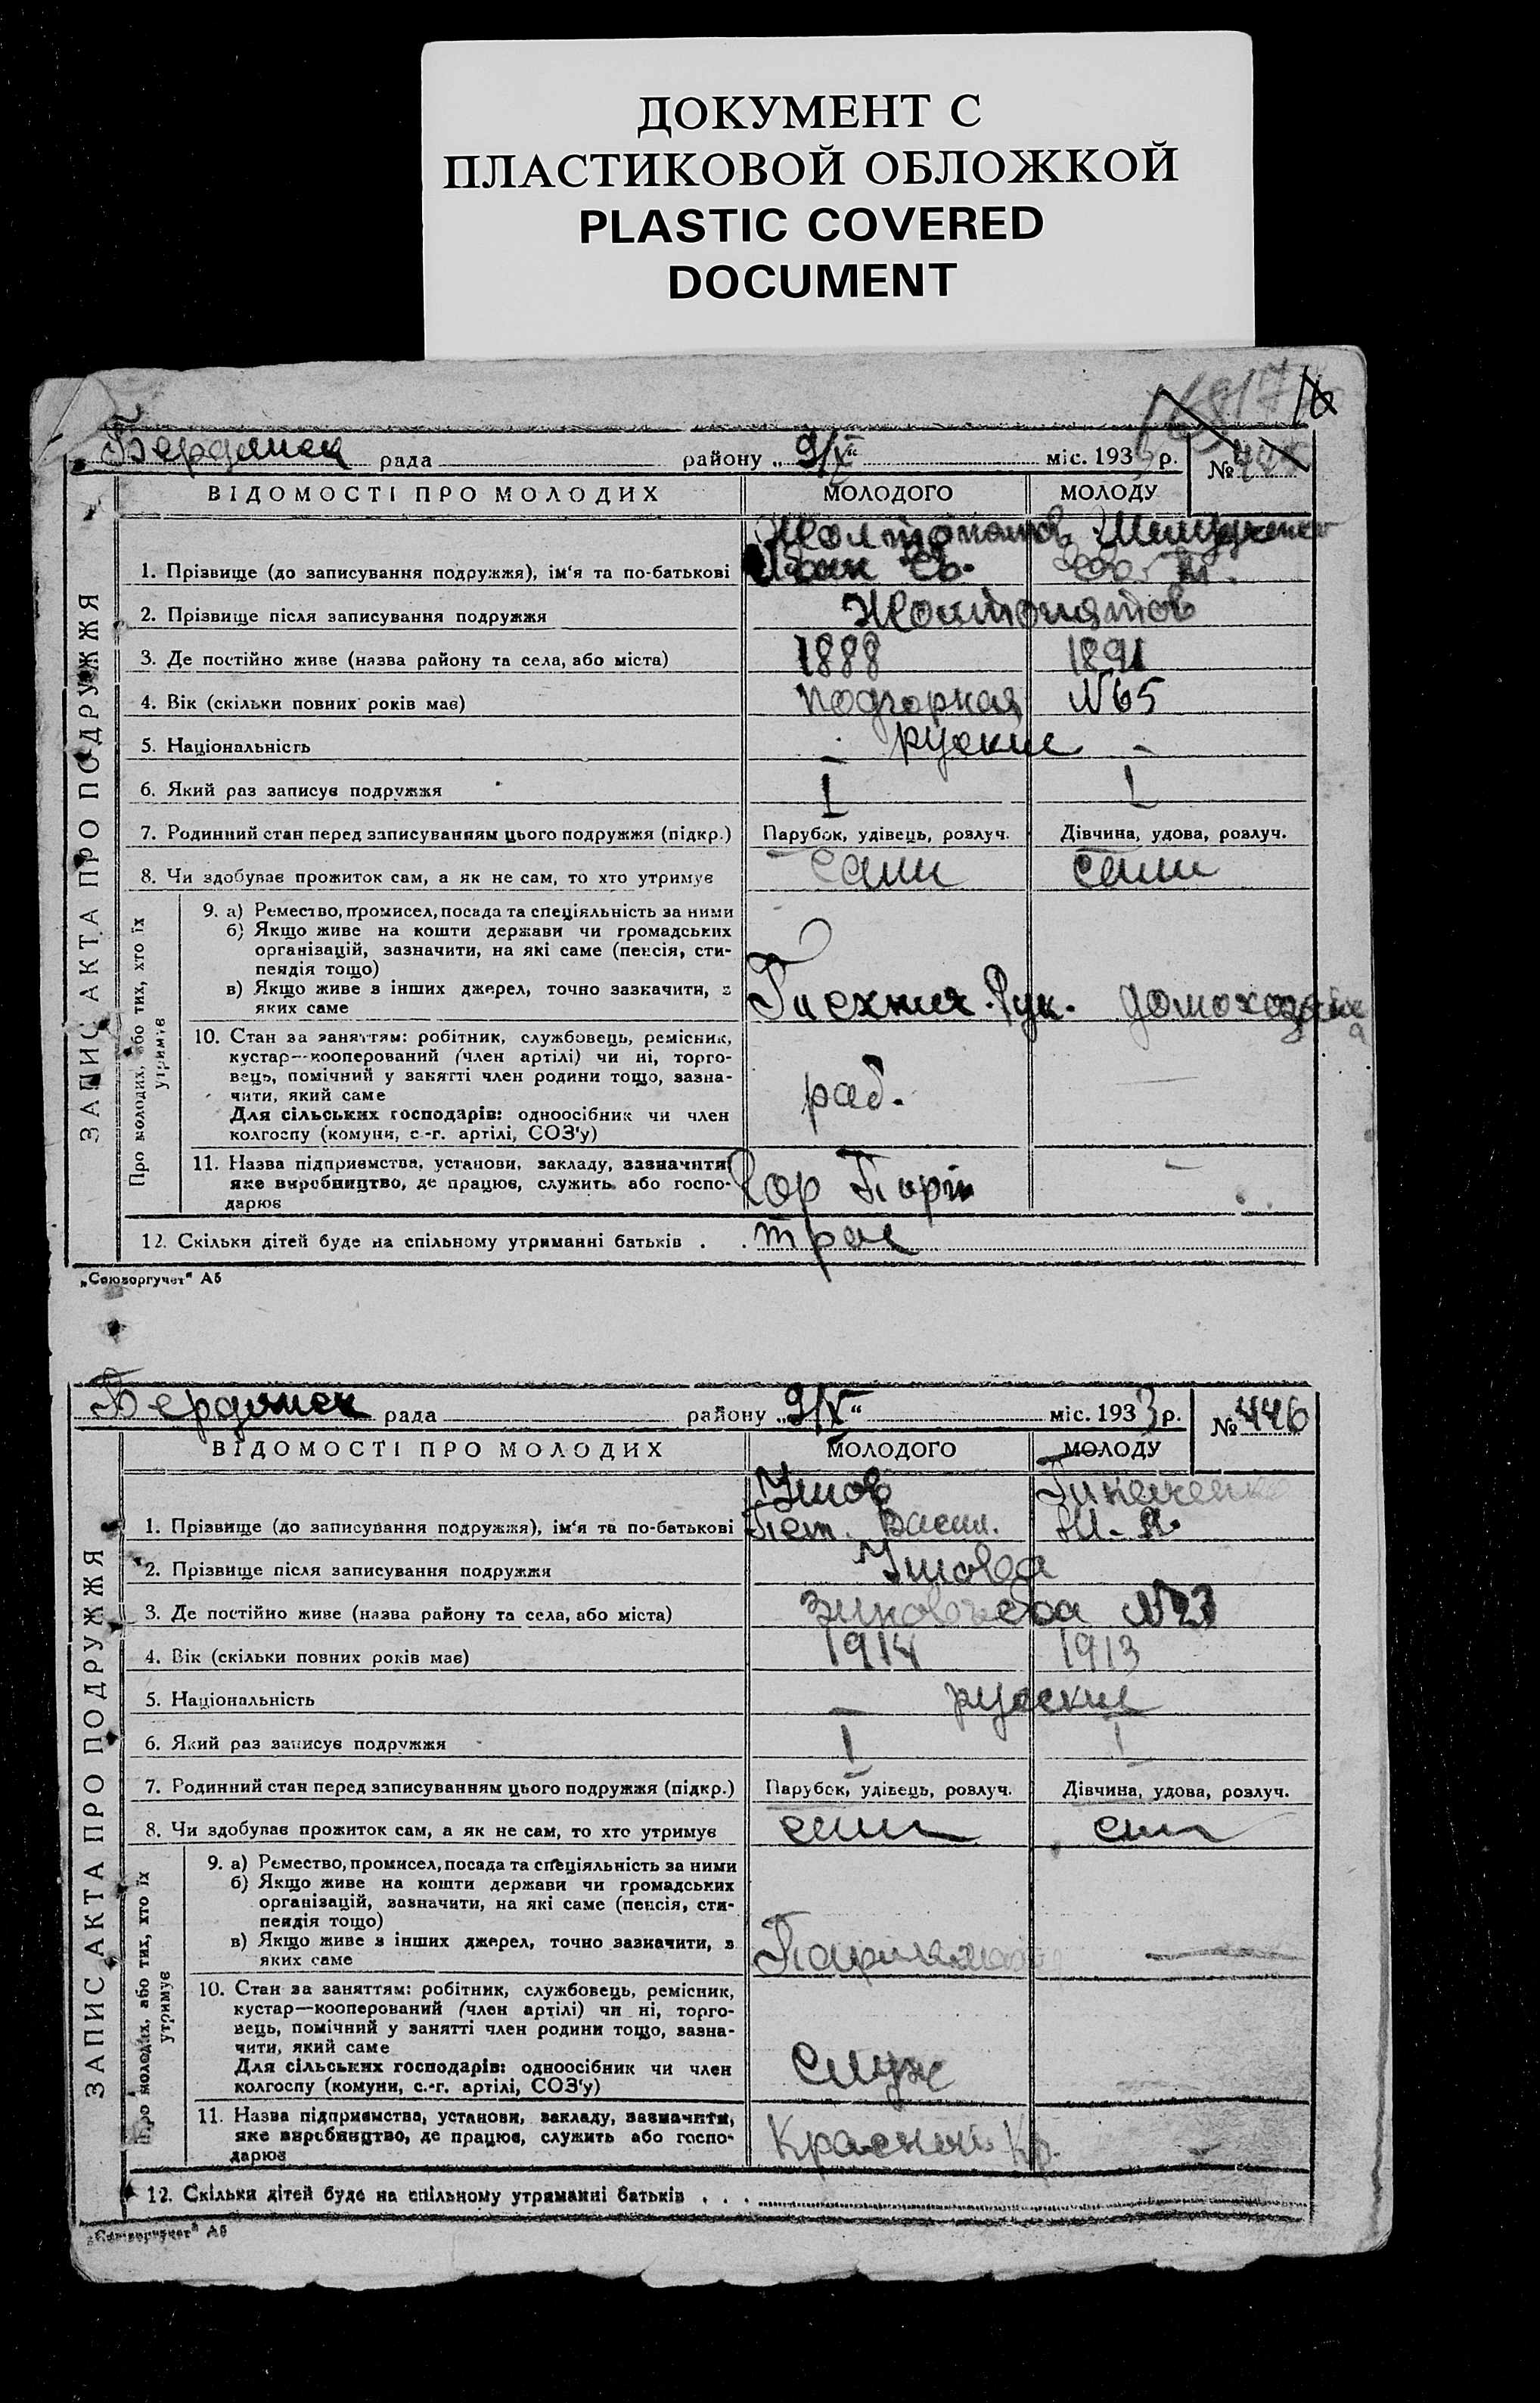 ДОКУМЕНТ С
ПЛАСТИКОВОЙ ОБЛОЖКОЙ
PLASTIC COVERED
DOCUMENT
Бердянск рада району „9/V“ міс. 193 р. №
ВІДОМОСТІ ПРО МОЛОДИХ МОЛОДОГО МОЛОДУ
ЗАПИС АКТА ПРО ПОДРУЖЖЯ
1. Прізвище (до записування подружжя), ім'я та по-батькові Иван
2. Прізвище після записування подружжя
3. Де постійно живе (назва району та села, або міста) 1888 1891
4. Вік (скільки повних років має) подгорная №65
5. Національність руские
6. Який раз записує подружжя I I
7. Родинний стан перед записуванням цього подружжя (підкр.) Парубок, удівець, розлуч. Дівчина, удова, розлуч.
8. Чи здобуває прожиток сам, а як не сам, то хто утримує сами сами
Про молодих, або тих, хто їх утримує
9. а) Ремество, промисел, посада та спеціяльність за ними
б) Якщо живе на кошти держави чи громадських
організацій, зазначити, на які саме (пенсія, сти-
пендія тощо)
в) Якщо живе з інших джерел, точно зазначити, з
яких саме Технич. Рук. домохозяйка
10. Стан за заняттям: робітник, службовець, ремісник,
кустар—кооперований (член артілі) чи ні, торго-
вець, помічний у занятті член родини тощо, зазна-
чити, який саме раб.
Для сільських господарів: одноосібник чи член
колгоспу (комуни, с.-г. артілі, СОЗ'у)
11. Назва підприємства, установи, закладу, зазначити
яке виробництво, де працює, служить або госпо-
дарює
12. Скільки дітей буде на спільному утриманні батьків . . трое
„Союзоргучет“ А5
Бердянск рада району „9/V“ міс. 1933 р. № 446
ВІДОМОСТІ ПРО МОЛОДИХ МОЛОДОГО МОЛОДУ
ЗАПИС АКТА ПРО ПОДРУЖЖЯ
1. Прізвище (до записування подружжя), ім'я та по-батькові Пет. Васил.
2. Прізвище після записування подружжя
3. Де постійно живе (назва району та села, або міста) №23
4. Вік (скільки повних років має) 1914 1913
5. Національність руские
6. Який раз записує подружжя I I
7. Родинний стан перед записуванням цього подружжя (підкр.) Парубок, удівець, розлуч. Дівчина, удова, розлуч.
8. Чи здобуває прожиток сам, а як не сам, то хто утримує сами сами
Про молодих, або тих, хто їх утримує
9. а) Ремество, промисел, посада та спеціяльність за ними
б) Якщо живе на кошти держави чи громадських
організацій, зазначити, на які саме (пенсія, сти-
пендія тощо)
в) Якщо живе з інших джерел, точно зазначити, з
яких саме
10. Стан за заняттям: робітник, службовець, ремісник,
кустар—кооперований (член артілі) чи ні, торго-
вець, помічний у занятті член родини тощо, зазна-
чити, який саме служ
Для сільських господарів: одноосібник чи член
колгоспу (комуни, с.-г. артілі, СОЗ'у)
11. Назва підприємства, установи, закладу, зазначити,
яке виробництво, де працює, служить або госпо-
дарює Красный
12. Скільки дітей буде на спільному утриманні батьків . . .
„Союзоргучет“ А5